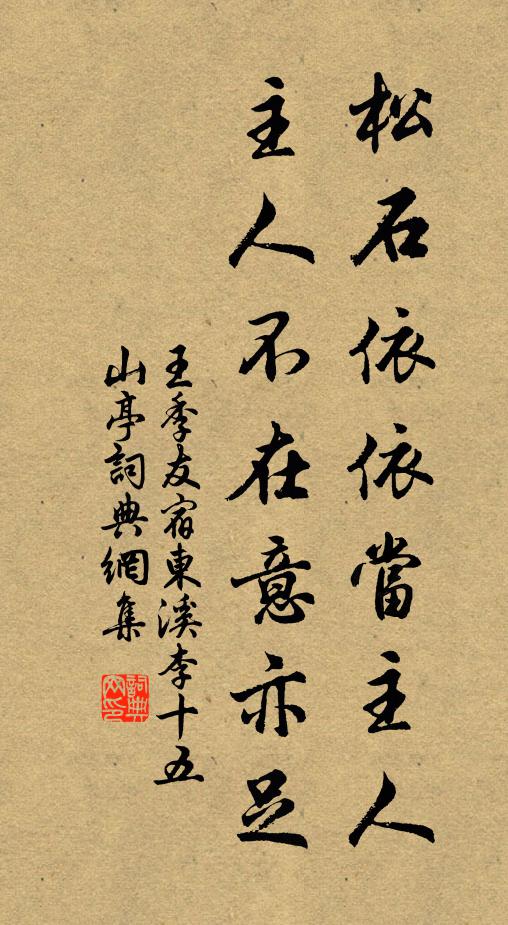 松石依依當主人
主人不在意亦足
王季友宿東溪李十五
山亭詞典網集
詞典